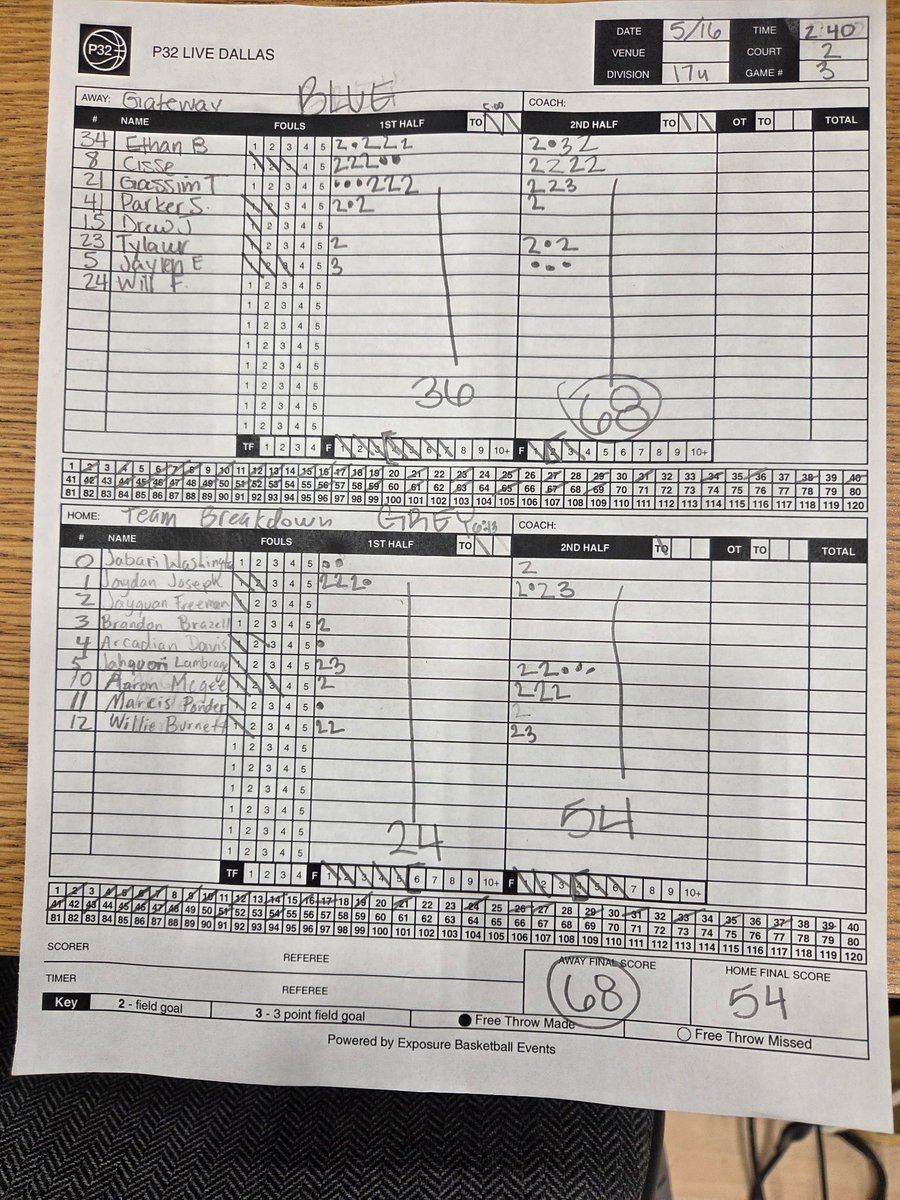 P32
P32 LIVE DALLAS
DATE 5/16 TIME 2:40
VENUE COURT 2
DIVISION 17u GAME # 3
AWAY: Gateway BLUE COACH:
5:00
# NAME FOULS 1ST HALF TO 2ND HALF TO OT TO TOTAL
34 Ethan B 1 2 3 4 5 2•222 2•32
8 Cisse 1 2 3 4 5 222•• 2222
21 Gassim T 1 2 3 4 5 •••222 223
41 Parker S. 1 2 3 4 5 2•2 2
15 Drew J 1 2 3 4 5
23 Tylawr 1 2 3 4 5 2 2•2
5 Jaylen E 1 2 3 4 5 3 •••
24 Will F. 1 2 3 4 5
1 2 3 4 5
1 2 3 4 5
1 2 3 4 5
1 2 3 4 5
1 2 3 4 5
1 2 3 4 5
1 2 3 4 5
36 68
TF 1 2 3 4 F 1 2 3 4 5 6 7 8 9 10+ F 1 2 3 4 5 6 7 8 9 10+
1 2 3 4 5 6 7 8 9 10 11 12 13 14 15 16 17 18 19 20 21 22 23 24 25 26 27 28 29 30 31 32 33 34 35 36 37 38 39 40
41 42 43 44 45 46 47 48 49 50 51 52 53 54 55 56 57 58 59 60 61 62 63 64 65 66 67 68 69 70 71 72 73 74 75 76 77 78 79 80
81 82 83 84 85 86 87 88 89 90 91 92 93 94 95 96 97 98 99 100 101 102 103 104 105 106 107 108 109 110 111 112 113 114 115 116 117 118 119 120
HOME: Team Breakdown GREY COACH:
# NAME FOULS 1ST HALF TO 2ND HALF TO OT TO TOTAL
0 Jabari Washingto 1 2 3 4 5 •• 2
1 Jaydan Joseph 1 2 3 4 5 222• 2•23
2 Jayquan Freeman 1 2 3 4 5
3 Brandon Brazell 1 2 3 4 5 2
4 Arcadian Davis 1 2 3 4 5 •
5 Jahquori Lambrage 1 2 3 4 5 23 22•••
10 Aaron Mcgee 1 2 3 4 5 2 222
11 Marcis Ponder 1 2 3 4 5 • 2
12 Willie Burnett 1 2 3 4 5 22 23
1 2 3 4 5
1 2 3 4 5
1 2 3 4 5
1 2 3 4 5
1 2 3 4 5
1 2 3 4 5
24 54
TF 1 2 3 4 F 1 2 3 4 5 6 7 8 9 10+ F 1 2 3 4 5 6 7 8 9 10+
1 2 3 4 5 6 7 8 9 10 11 12 13 14 15 16 17 18 19 20 21 22 23 24 25 26 27 28 29 30 31 32 33 34 35 36 37 38 39 40
41 42 43 44 45 46 47 48 49 50 51 52 53 54 55 56 57 58 59 60 61 62 63 64 65 66 67 68 69 70 71 72 73 74 75 76 77 78 79 80
81 82 83 84 85 86 87 88 89 90 91 92 93 94 95 96 97 98 99 100 101 102 103 104 105 106 107 108 109 110 111 112 113 114 115 116 117 118 119 120
SCORER REFEREE AWAY FINAL SCORE HOME FINAL SCORE
68 54
TIMER REFEREE
Key 2 - field goal 3 - 3 point field goal Free Throw Made Free Throw Missed
Powered by Exposure Basketball Events